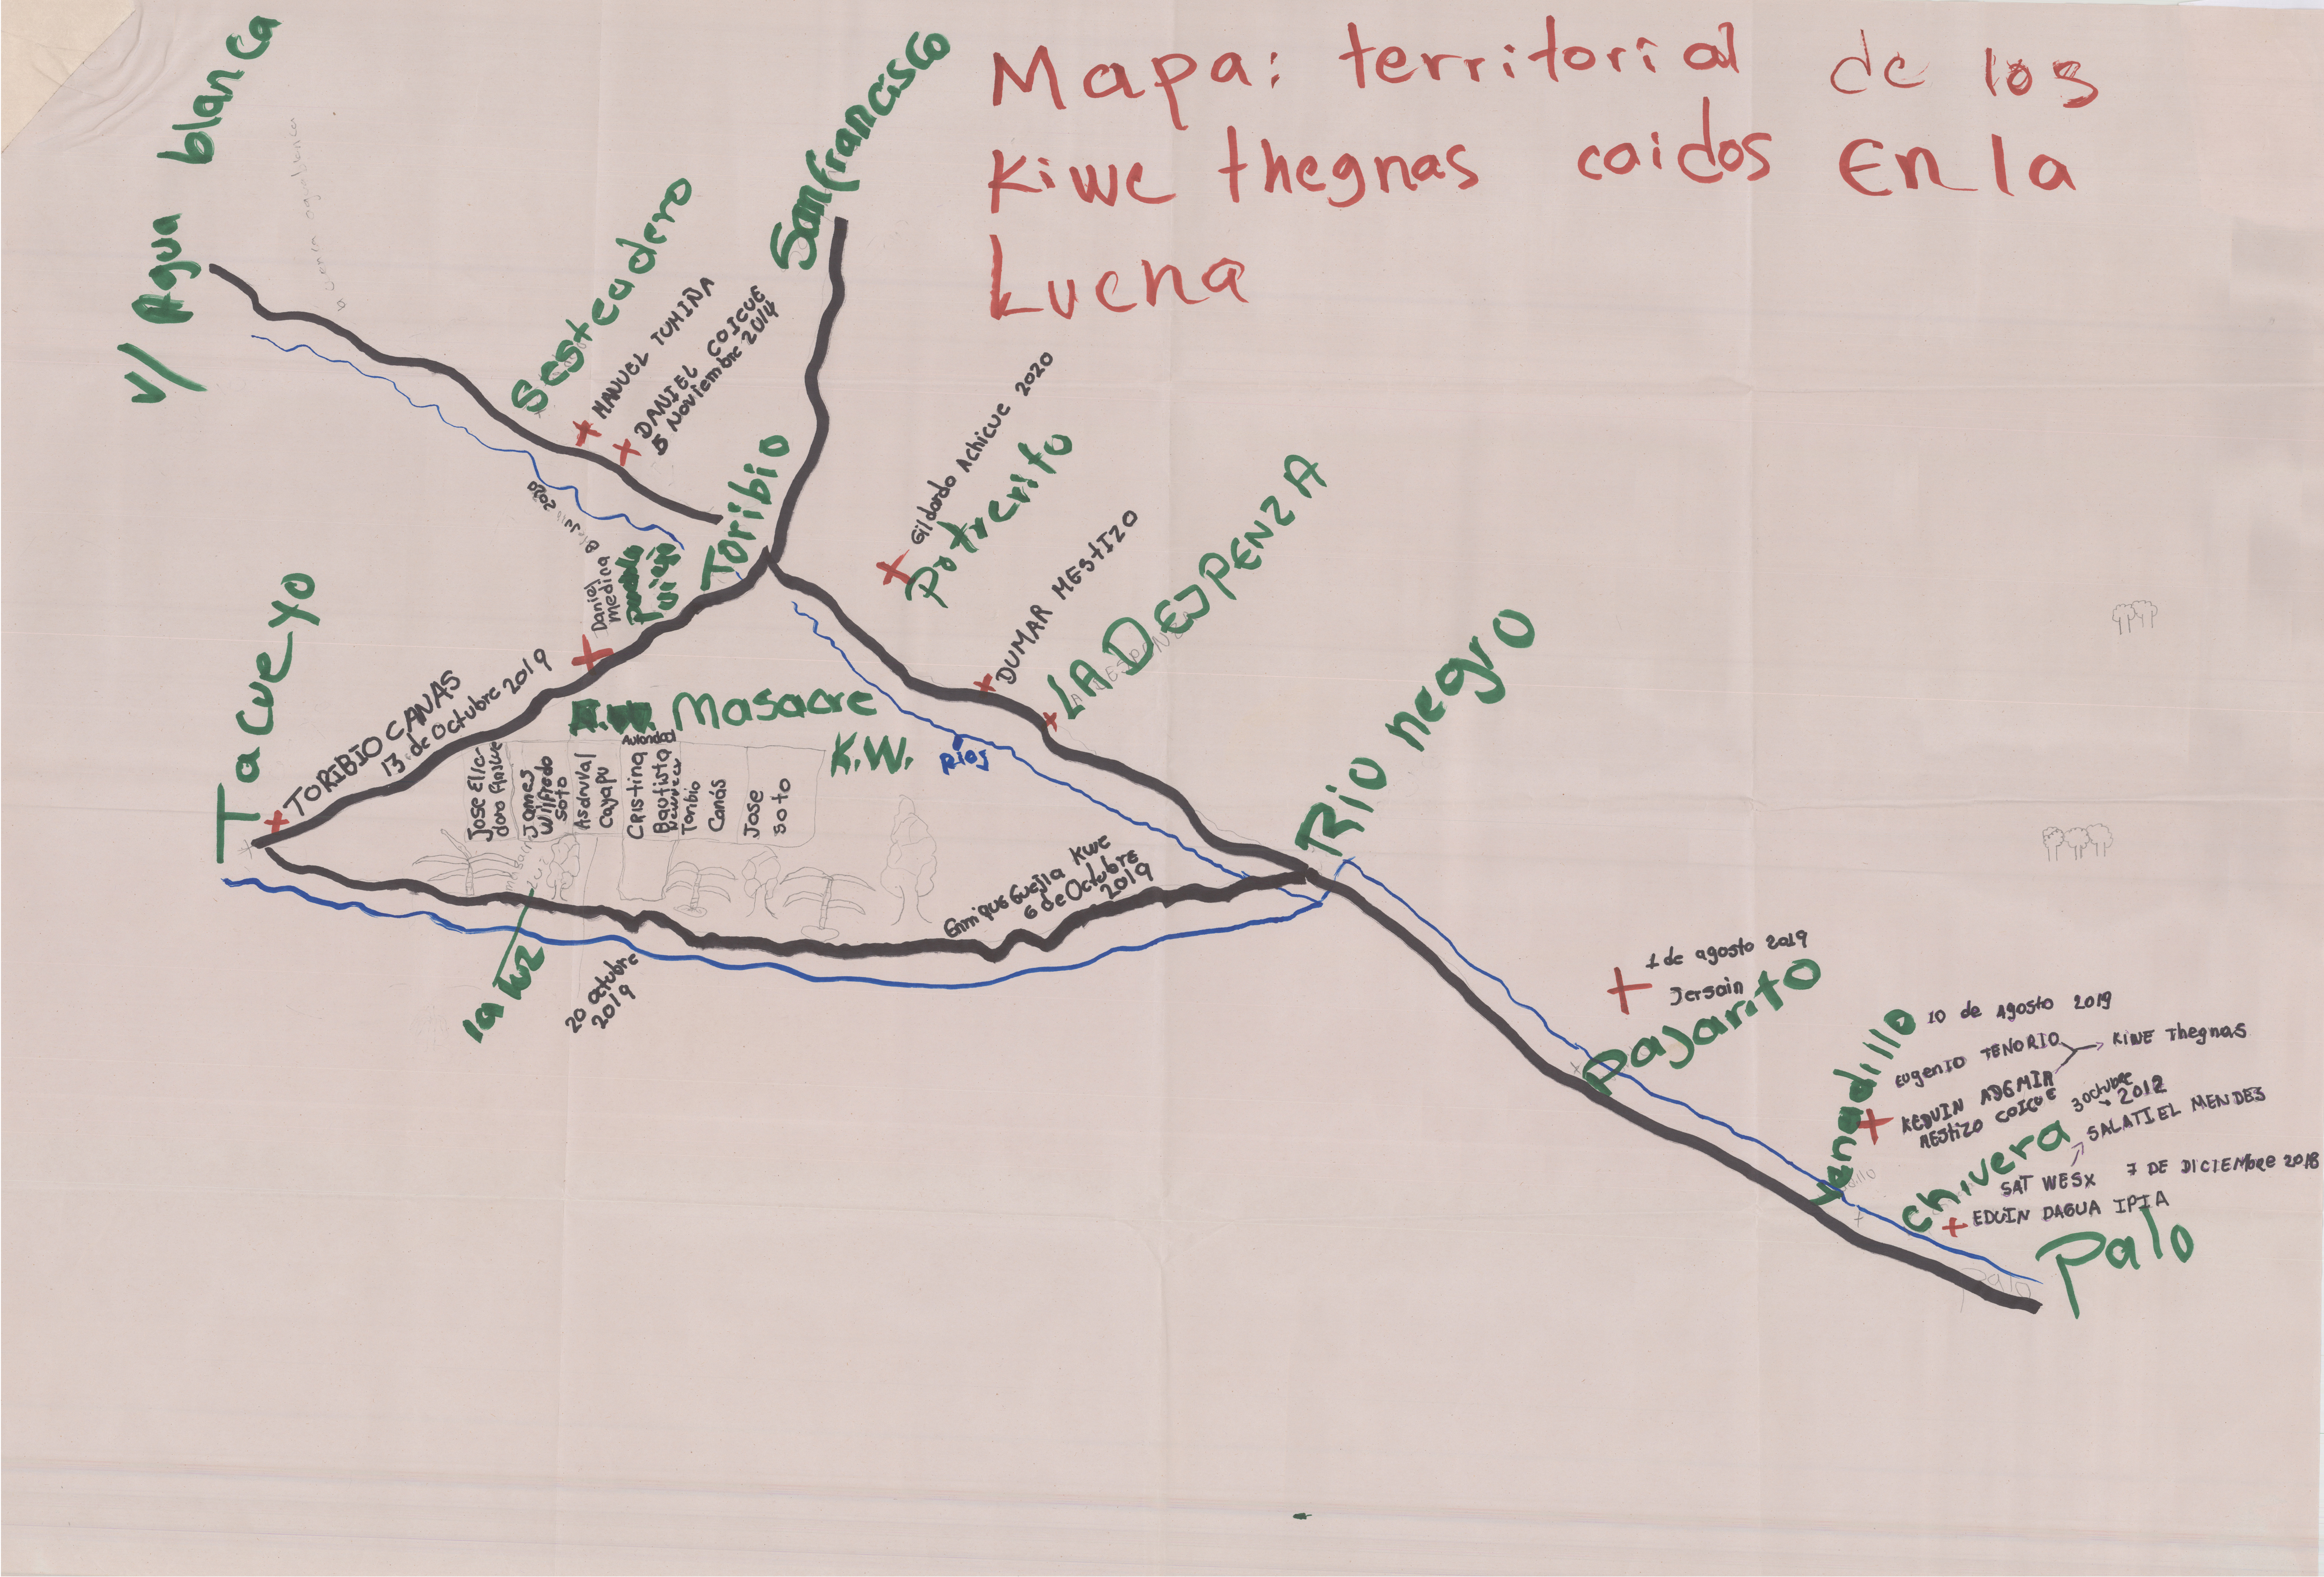 Mapa: territorial de los
Kiwe thegnas caidos En la
Lucha
V/ Agua blanca
Sesteadero
MANUEL TUMIÑA
DANIEL COICUE
5 Noviembre 2014
San francisco
Toribio
Gildardo Achicue 2020
Potrerito
DUMAR MEStIZO
LA DESPENZA
Rio negro
Daniel
medina
2020
pueblo
viejo
Tacueyo
TORIBIO CANAS
13 de Octubre 2019
Masacre
K.W.
Rios
Jose Elio
doro
James
Wilfredo
Soto
Asdruval
Cayapu
Autoridad
Cristina
Bautista
Toribio
Canás
Jose
Soto
la luz
20 Octubre
2019
Enrique Guejia Kwe
6 de Octubre
2019
1 de agosto 2019
Jersain
Pajarito
10 de Agosto 2019
EUgenIO TENORIO
KIWE Thegnas
KEDUIN ADEMIR
MEStIZO COICUE
3 Octubre
2012
SALATIEL MENDES
SAT WESX 7 DE DICIEMbre 2018
EDUIN DAGUA IPIA
Venadillo
Chivera
Palo
Palo